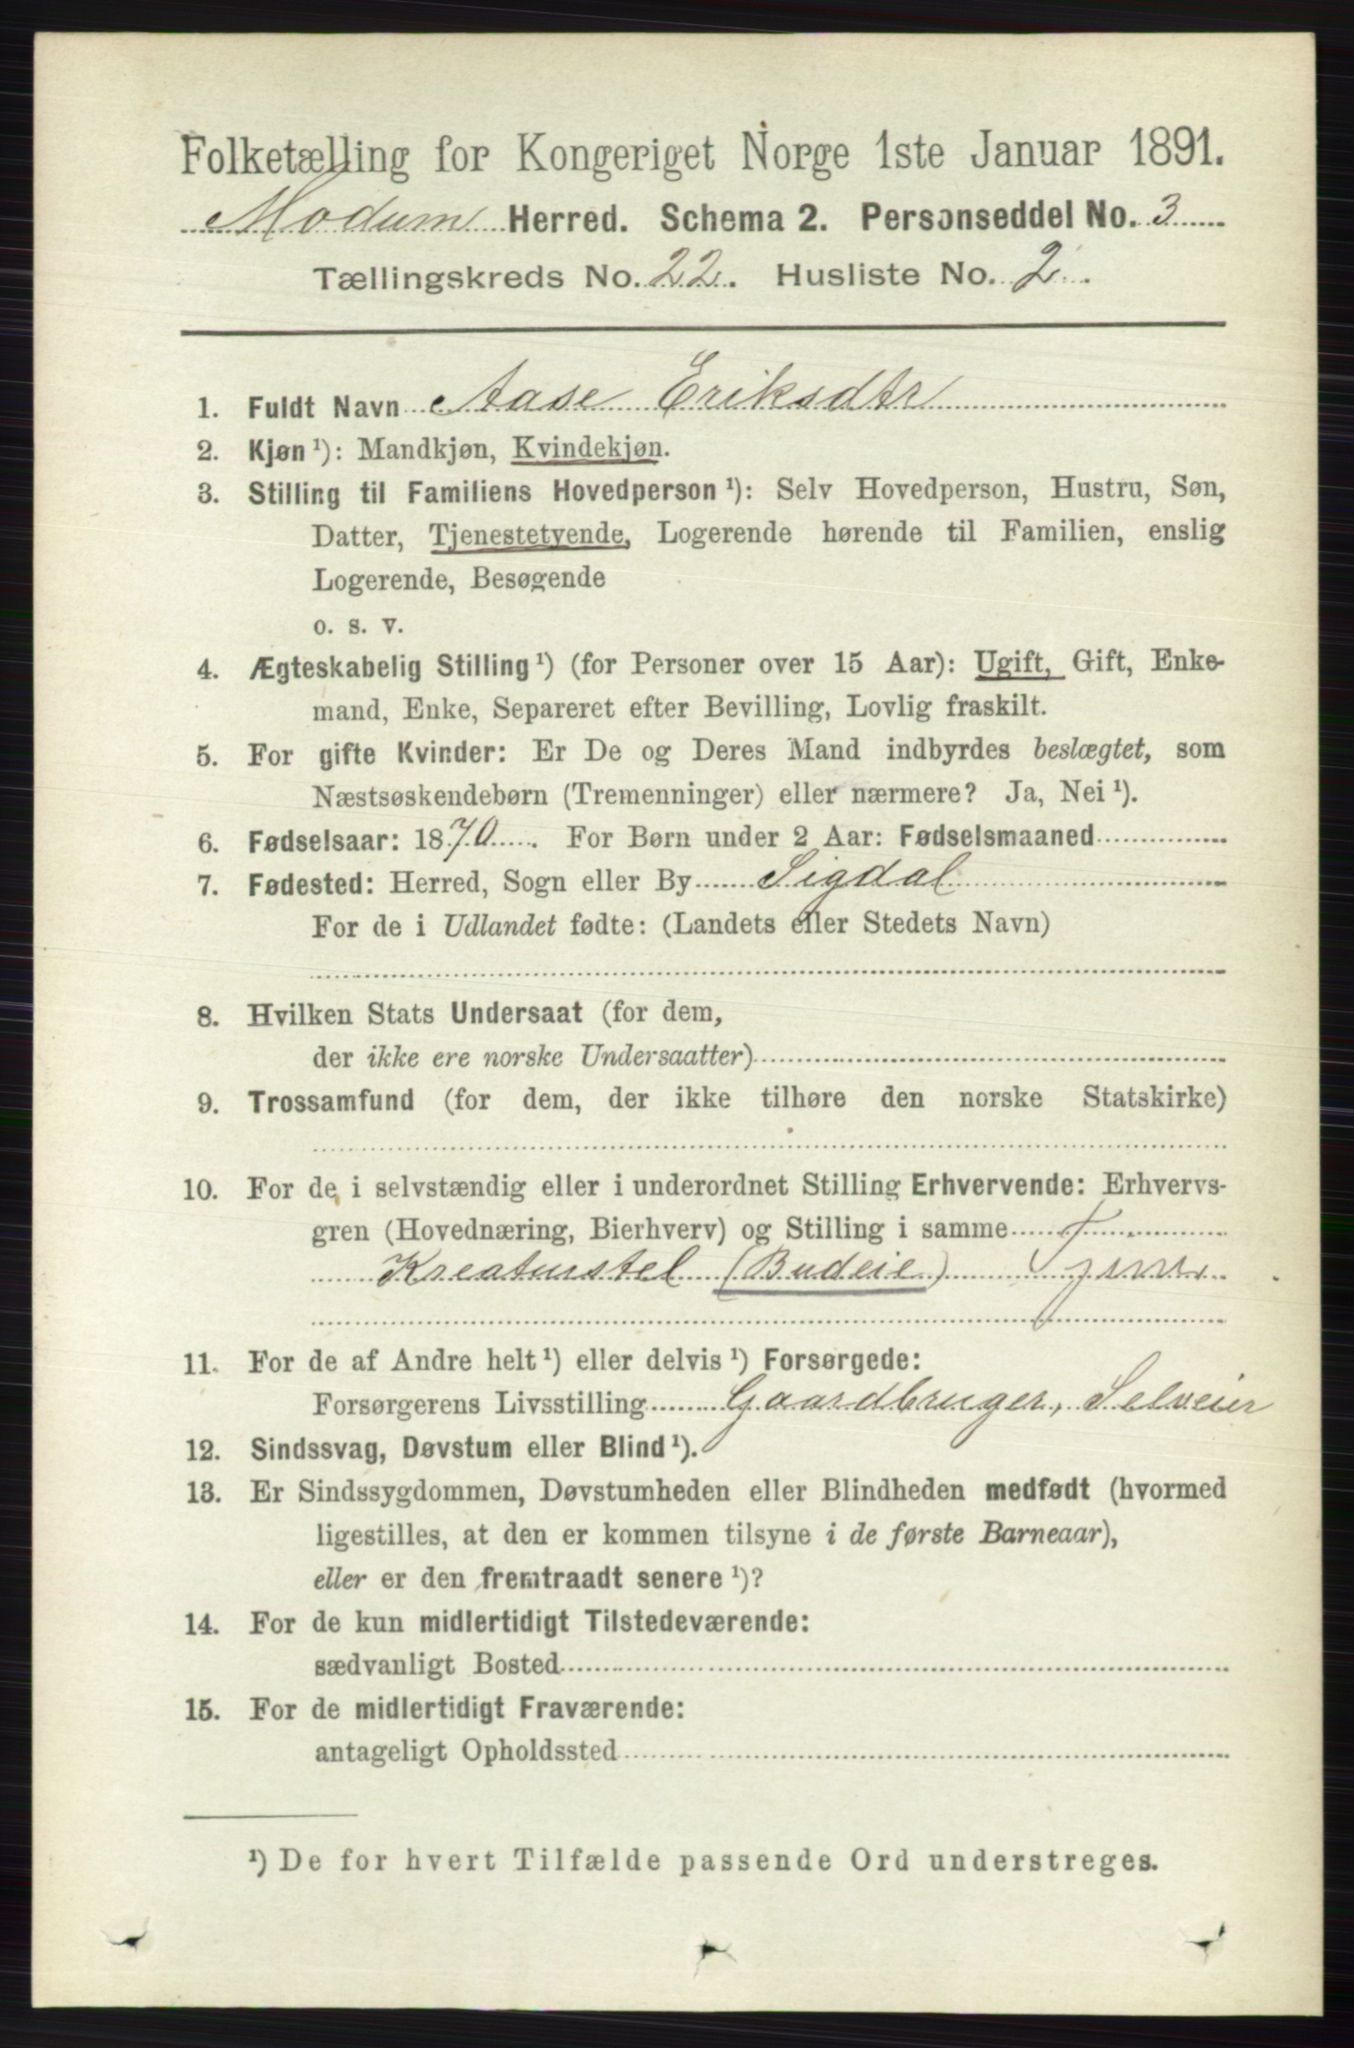 Folketælling for Kongeriget Norge 1ste Januar 1891.
Modum Herred. Schema 2. Personseddel No. 3
Tællingskreds No. 22. Husliste No. 2.
1. Fuldt Navn Aase Eriksdtr
2. Kjøn¹): Mandkjøn, Kvindekjøn.
3. Stilling til Familiens Hovedperson¹): Selv Hovedperson, Hustru, Søn,
Datter, Tjenestetyende, Logerende hørende til Familien, enslig
Logerende, Besøgende
o. s. v.
4. Ægteskabelig Stilling¹) (for Personer over 15 Aar): Ugift, Gift, Enke-
mand, Enke, Separeret efter Bevilling, Lovlig fraskilt.
5. For gifte Kvinder: Er De og Deres Mand indbyrdes beslægtet, som
Næstsøskendebørn (Tremenninger) eller nærmere? Ja, Nei¹).
6. Fødselsaar: 1870. For Børn under 2 Aar: Fødselsmaaned
7. Fødested: Herred, Sogn eller By Sigdal
For de i Udlandet fødte: (Landets eller Stedets Navn)
8. Hvilken Stats Undersaat (for dem,
der ikke ere norske Undersaatter)
9. Trossamfund (for dem, der ikke tilhøre den norske Statskirke)
10. For de i selvstændig eller i underordnet Stilling Erhvervende: Erhvervs-
gren (Hovednæring, Bierhverv) og Stilling i samme
Kreaturstel (Budeie)
11. For de af Andre helt¹) eller delvis¹) Forsørgede:
Forsørgerens Livsstilling Gaardbruger, Selveier
12. Sindssvag, Døvstum eller Blind¹).
13. Er Sindssygdommen, Døvstumheden eller Blindheden medfødt (hvormed
ligestilles, at den er kommen tilsyne i de første Barneaar),
eller er den fremtraadt senere¹)?
14. For de kun midlertidigt Tilstedeværende:
sædvanligt Bosted
15. For de midlertidigt Fraværende:
antageligt Opholdssted
¹) De for hvert Tilfælde passende Ord understreges.